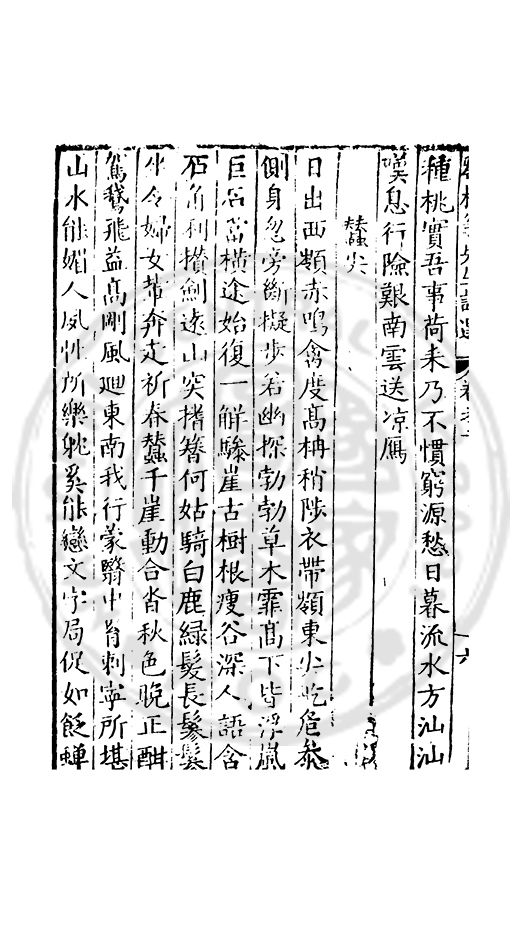 種桃實吾事荷耒乃不慣窮源愁日暮流水方汕汕
嘆息行險艱南雲送凉鴈
蠶尖
日出西頰赤鳴禽度髙柟稍陟衣帶嶺東尖屹危叅
側身怱旁斷擬步若幽探勃勃草木霏髙下皆浮嵐
巨石當橫途始復一解驂崖古樹根瘦谷深人語含
石角利攢劍遠山突㨕簪何姑騎白鹿綠髮長鬖鬖
坐令婦女輩奔走祈春蠶千崖動合沓秋色晚正酣
駕鵞飛益髙剛風廽東南我行蒙翳中芻刺寧所堪
山水能媚人夙性所樂躭奚能戀文字局促如飯蟬
六